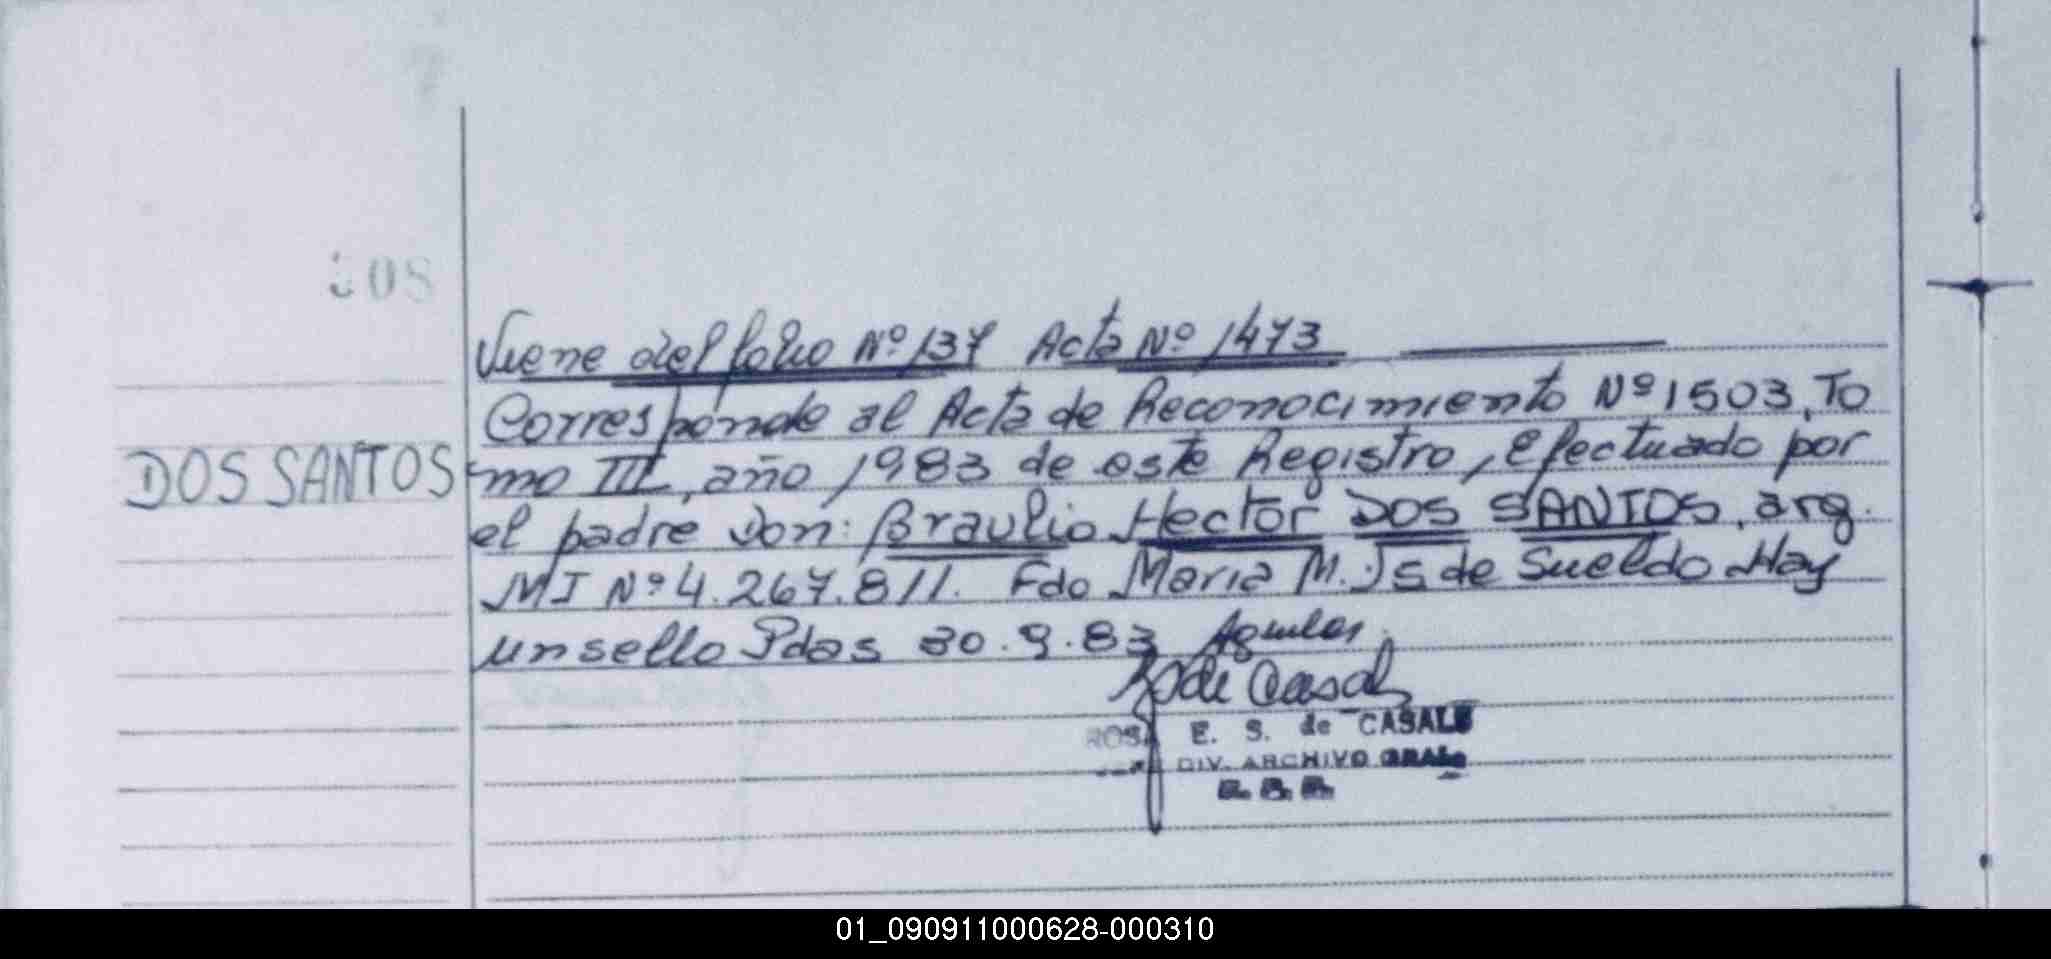 308
Viene del folio Nº 137 Acta Nº 1473
Corresponde al Acta de Reconocimiento Nº 1503, To
DOS SANTOS
mo III, año 1983 de este Registro, efectuado por
el padre Don: Braulio Hector DOS SANTOS, arg.
MI Nº 4.267.811. Fdo Maria M. Js de Sueldo Hay
un sello Pdas 30.9.83 Aguilar
de Casal
ROSA E. S. de CASALE
DIV. ARCHIVO GRAL.
01_090911000628-000310